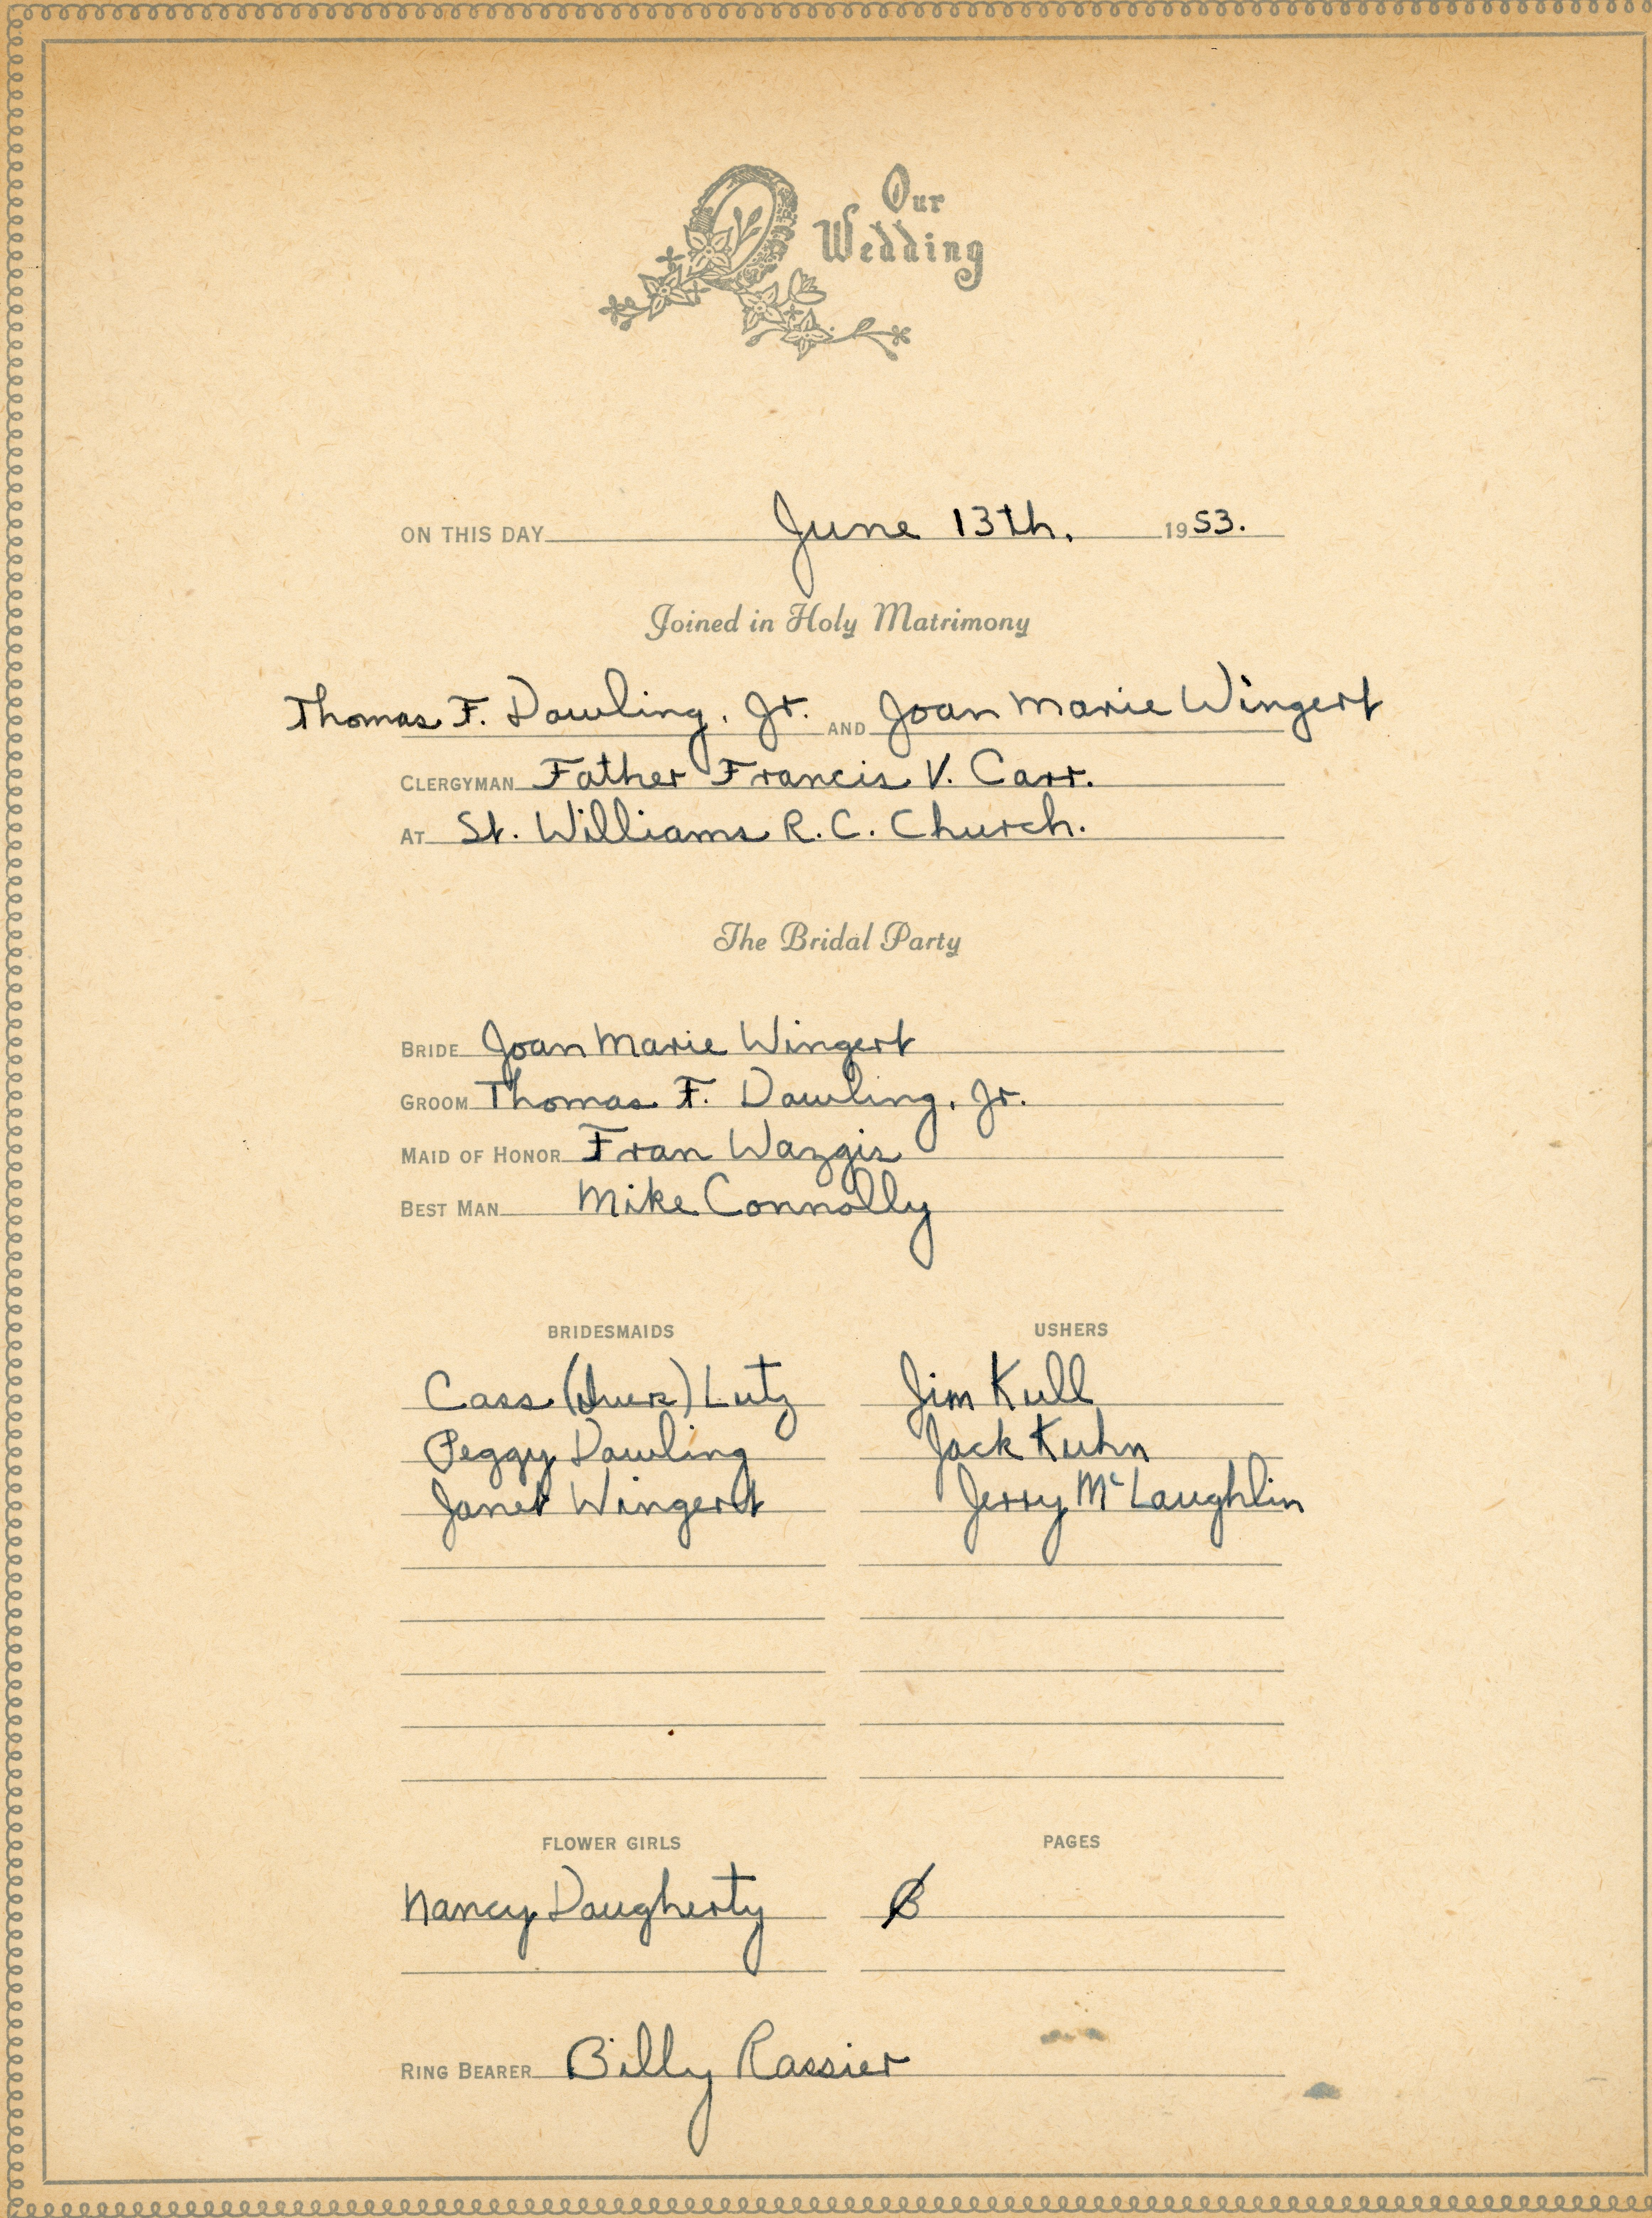 Our
Wedding
ON THIS DAY June 13th. 1953.
Joined in Holy Matrimony
Thomas F. Dowling, Jr. AND Joan Marie Wingert
CLERGYMAN Father Francis V. Carr.
AT St. Williams R. C. Church.
The Bridal Party
BRIDE Joan Marie Wingert
GROOM Thomas F. Dowling, Jr.
MAID OF HONOR Fran Wazgis
BEST MAN Mike Connolly
BRIDESMAIDS USHERS
Cass Lutz Jim Kull
Peggy Dowling Jack Kuhn
Janet Wingert Jerry McLaughlin
FLOWER GIRLS PAGES
Nancy Daugherty
RING BEARER Billy Rassier